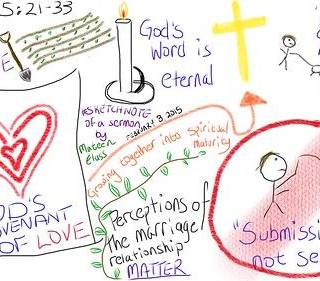 5:21-33
God's
Word is
eternal
#SKETCHNOTE
of a sermon
by
Mateen
Elass
FEBRUARY 8, 2015
Growing together into Spiritual
maturity
Perceptions of
the marriage
relationship
MATTER
GOD'S
COVENANT
OF LOVE
"Submissi
not se